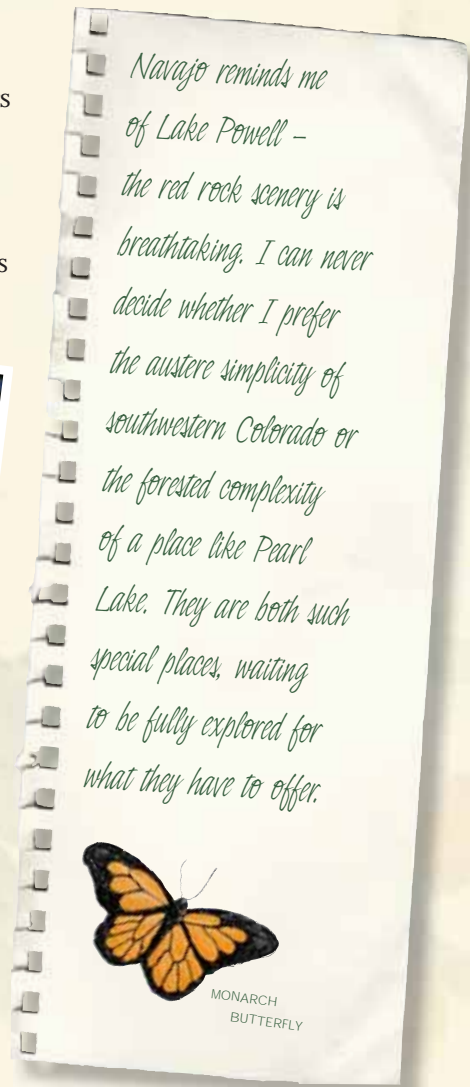 s
s
Navajo reminds me
of Lake Powell –
the red rock scenery is
breathtaking. I can never
decide whether I prefer
the austere simplicity of
southwestern Colorado or
the forested complexity
of a place like Pearl
Lake. They are both such
special places, waiting
to be fully explored for
what they have to offer.
MONARCH
BUTTERFLY